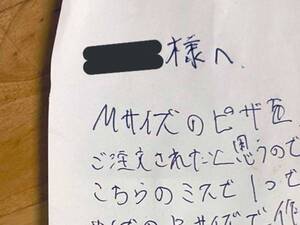 様へ.
Mサイズのピザを
ご注文されたと思うので
こちらのミスで1つで
サイズで